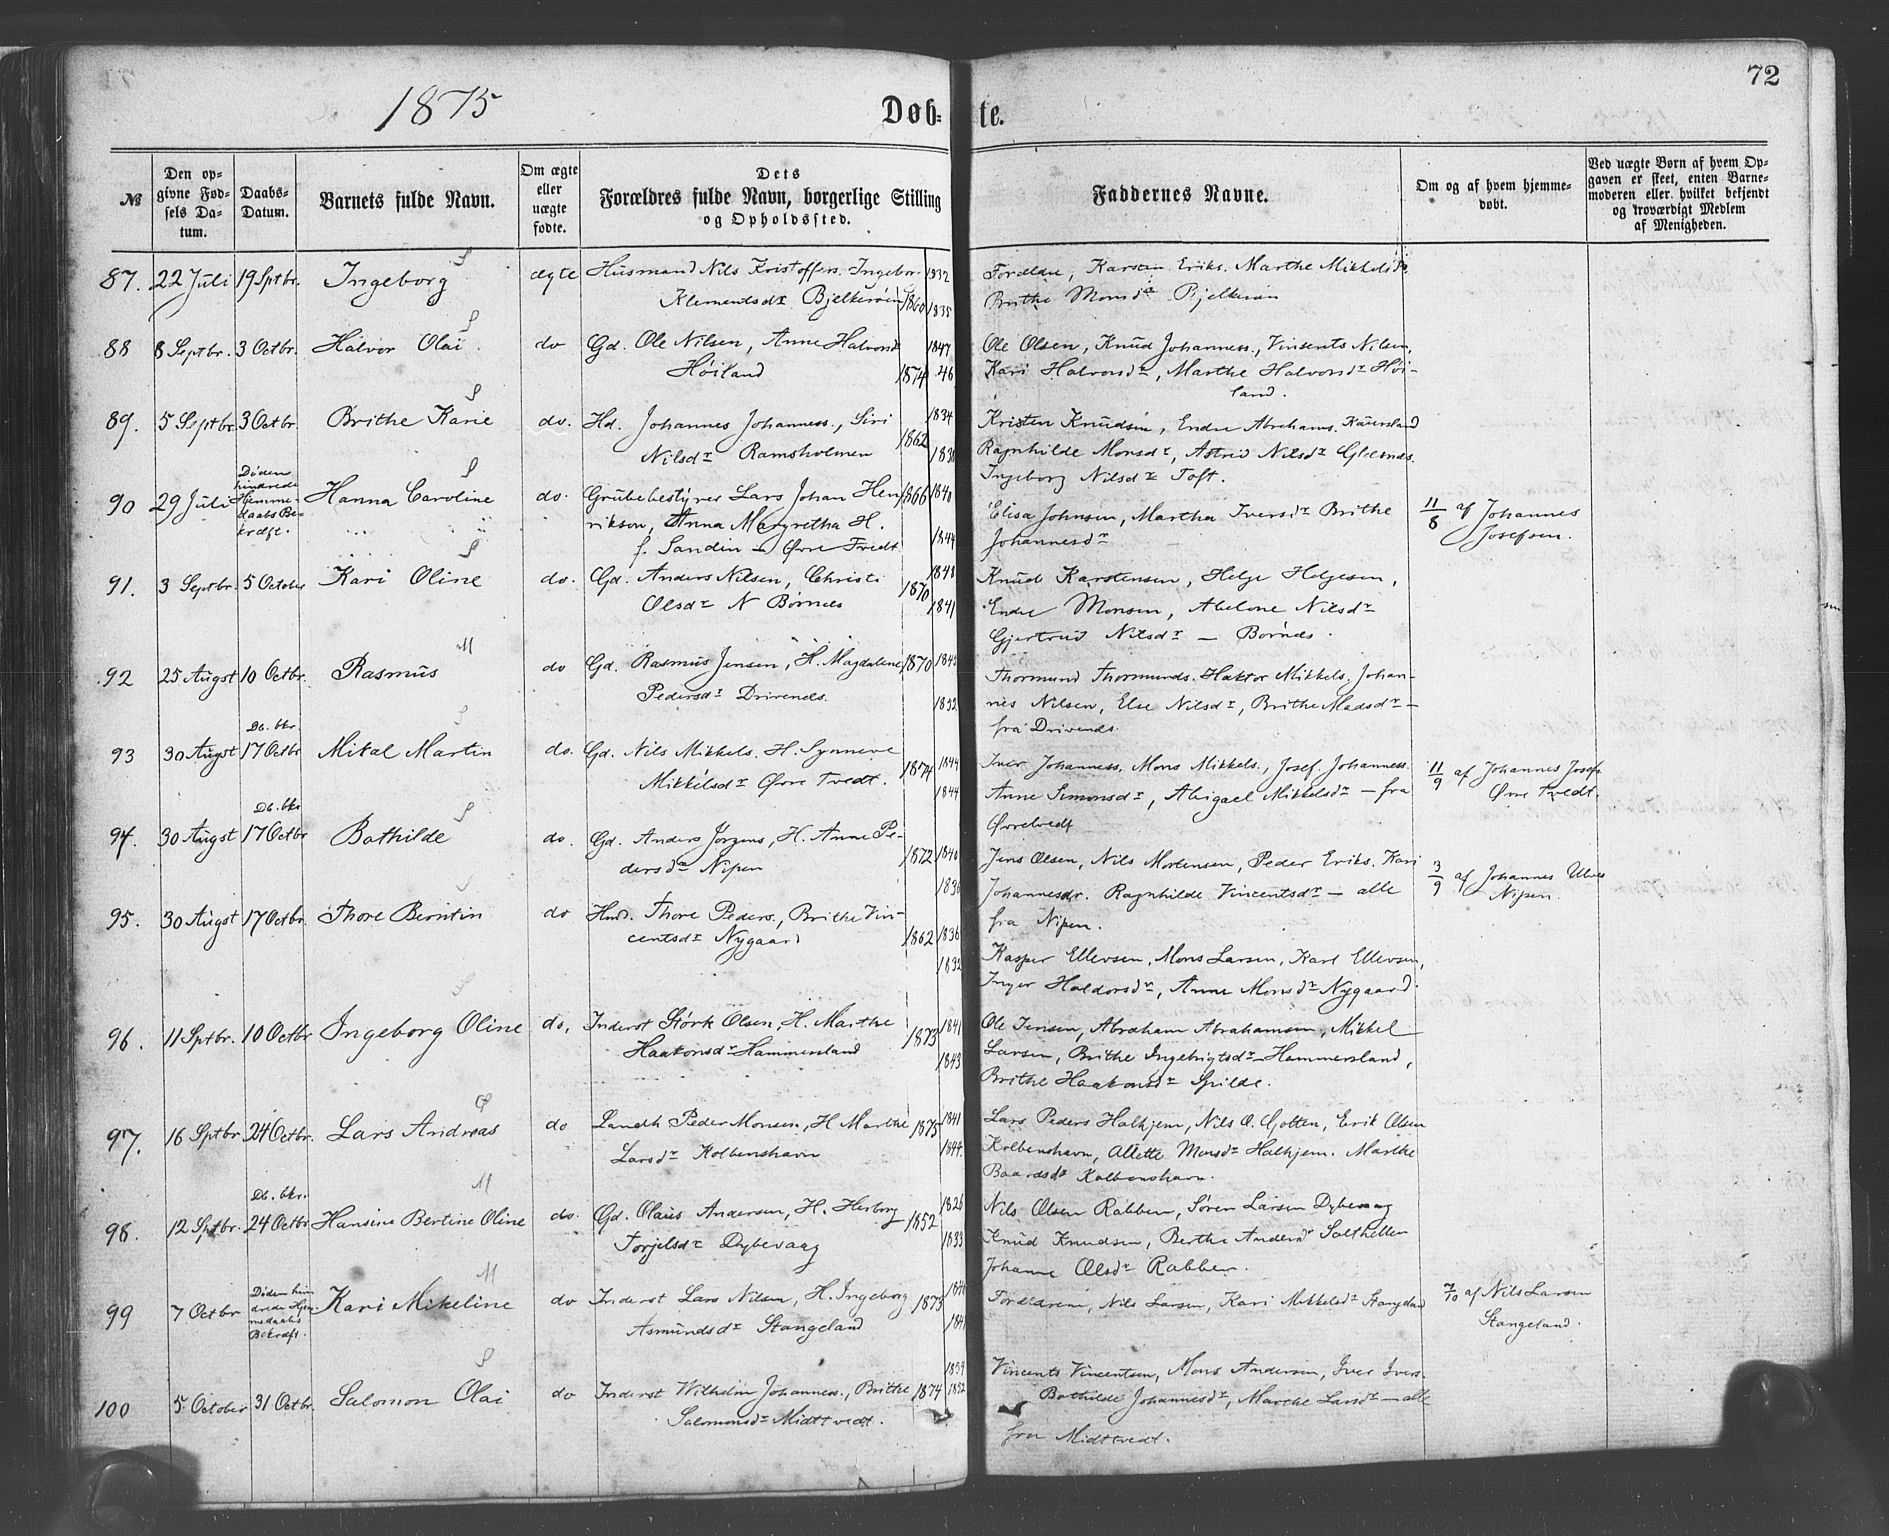 72
1875
Døb- te.
№
Den op-
givne Fød-
sels Da-
tum.
Daabs-
Datum.
Barnets fulde Navn.
Om ægte
eller
uægte
fødte.
Dets
Forældres fulde Navn, borgerlige Stilling
og Opholdssted.
Faddernes Navne.
Om og af hvem hjemme-
døbt.
Ved uægte Børn af hvem Op-
gaven er skeet, enten Barne-
moderen eller hvilket bekjendt
og troværdigt Medlem
af Menigheden.
87. 22 Juli 19 Sptbr. Ingeborg ægte Husmand Nils Kristoffers. Ingebor 1832
Klemensdr Bjelkerøen 1860 1835
Forældre, Karsten Eriks. Marthe Mikkelsdr
Brithe Monsdr Bjelkerøn
88 8 Septbr. 3 Octbr. Halvor Olai do Gd. Ole Nilsen, Anne Halvorsdr 1847
Høiland 1874 46
Ole Olsen, Knud Johanness., Vinsents Nilsen,
Kari Halvorsdr, Marthe Halvorsdr Høi-
land.
89. 5 Septbr. 3 Octbr. Brithe Karie do. Hd. Johannes Johanness., Siri 1834
Nilsdr Ramsholmen 1862
Kristen Knudsen, Endre Abrahams.
Ragnhilde Monsdr, Astrid Nilsdr
Ingeborg Nilsdr Toft.
90 29 Juli Døden
hindrede
Hjemme-
daabs Be-
kræft. Hanna Caroline do. Grubebestyrer Lars Johan Hen 1866 1840
rikson, Anna Margretha H. 1844
f. Sandin – Øvre Tvedt
Elisa Johnsen, Martha Iversdr Brithe
Johannesdr
11/8 af Johannes
Josefsen.
91. 3 Septbr. 5 October Kari Oline do. Gd. Anders Nilsen, Christi 1870 1848
Olsdr N Børnes 1841
Knud Karstensen, Helge Helgesen,
Endre Monsen, Abelone Nilsdr
Gjertrud Nilsdr – Børnes.
92 25 Augst 10 Octbr. Rasmus do Gd. Rasmus Jensen, H. Magdalene 1870 1843
Pedersdr Drivenes. 1832
Thormund Thormunds. Haktor Mikkels. Johan-
nes Nilsen, Else Nilsdr, Brithe Madsdr –
fra Drivends
93 30 Augst Db. bkr.
17 Octbr Mikal Martin do. Gd. Nils Mikkels. H. Synneve 1844
Mikkelsdr Øvre Tvedt. 1874 1844
Iver Johanness. Mons Mikkels., Josef Johanness.
Anne Simonsdr, Abigael Mikkelsdr – fra
Øvretvedt
11/9 af Johannes Josefs
Øvre Tvedt.
94. 30 Augst Db. bkr
17 Octbr Bothilde do. Gd. Anders Jørgens, H. Anne Pe- 1840
dersdr Nipen 1872 1836
Jens Olsen, Nils Mortensen, Peder Eriks. Kari
Johannesdr. Ragnhilde Vincentsdr – alle
fra Nipen.
3/9 af Johannes
Nipen.
95. 30 Augst 17 Octbr. Thore Berntin do Hmd. Thore Peders., Brithe Vin- 1836
centsdr Nygaard 1862 1832
Kasper Ellevsen, Mons Larsen, Karl Ellevsen,
Inger Haldorsdr, Anne Monsdr Nygaard.
96. 11 Sptbr. 10 Octbr Ingeborg Oline do. Inderst Størk Olsen, H. Marthe 1873 1841
Haakonsdr Hammersland 1843
Ole Jensen, Abraham Abrahamsen, Mikkel
Larsen, Brithe Ingebrigtsdr Hammersland,
Brithe Haakonsdr Spilde.
97. 16 Sptbr. 24 Octbr. Lars Andreas do Landh Peder Monsen, H Marthe 1875 1841
Larsdr Kolbenshavn 1844
Lars Peders Halhjem, Nils O. Gjotten, Erik Olsen
Kolbenshavn, Allette Monsdr Halhjem. Marthe
Baardsdr Kolbenshavn.
98. 12 Sptbr. Db. bkr.
24 Octbr Hansine Bertine Oline do. Gd. Olaus Andersen, H. Herborg 1852 1826
Torjelsdr Dybevaag 1833
Nils Olsen Rabben, Søren Larsen Dybevaag
Knud Knudsen, Berthe Andersdr Salthellen
Johanne Olsdr Rabben.
99 7 Octbr Døden hin
drede Hjem
medaabs
Bekræft. Kari Mikeline do Inderst Lars Nilsen, H. Ingeborg 1873
Asmundsdr Stangeland
Forældrene, Nils Larsen, Kari Mikkelsdr Stangeland
7/10 af Nils Larsen
Stangeland.
100 5 October 31 Octbr. Salomon Olai do Inderst Wilhelm Johanness., Brithe 1874
Salomonsdr Midttvedt.
Vincents Vincentsen, Mons Andersen, Iver Ivers.
Bothilde Johannesdr, Marthe Larsdr – alle
fra Midttvedt.